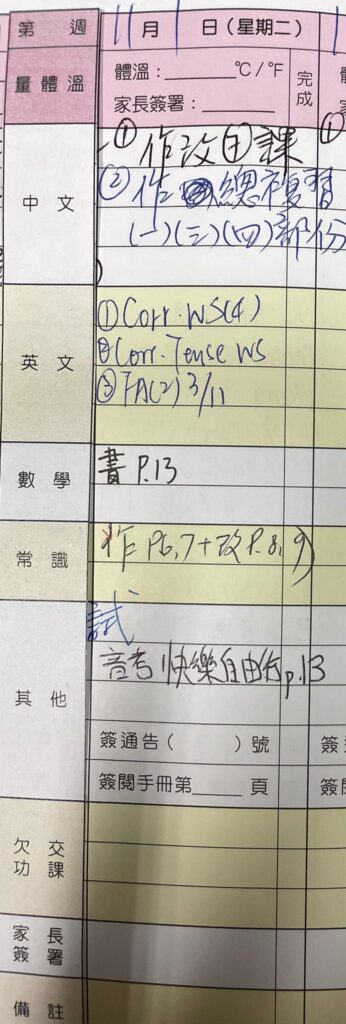 第 週 11 月 1 日(星期二)
量體溫 體溫：______°C/°F 完成
家長簽署：______
中文 ①作改①課
②作總複習
(一)(三)(四)部份
英文 ①Corr. WS(4)
②Corr. Tense WS
③FA(2) 3/11
數學 書 P.13
常識 作 P6,7+改 P.8,9)
其他 試
音考 快樂自由行 p.13
簽通告( )號
簽閱手冊第____頁
欠交功課
家長簽署
備註